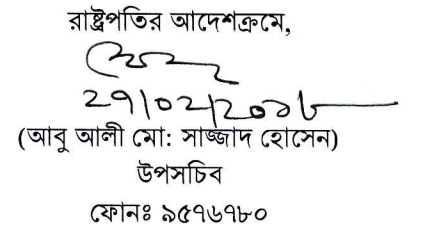 রাষ্ট্রপতির আদেশক্রমে,
২৭/০২/২০১৮
(আবু আলী মো: সাজ্জাদ হোসেন)
উপসচিব
ফোনঃ ৯৫৭৬৭৮০